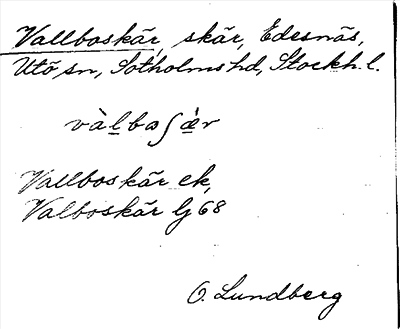 Vallboskär, skär, Edesnäs,
Utö sn, Sotholms hd, Stockh. l.
vàl̲boʃæ̲̀r
Vallboskär ek,
Valboskär lj 68
O. Lundberg